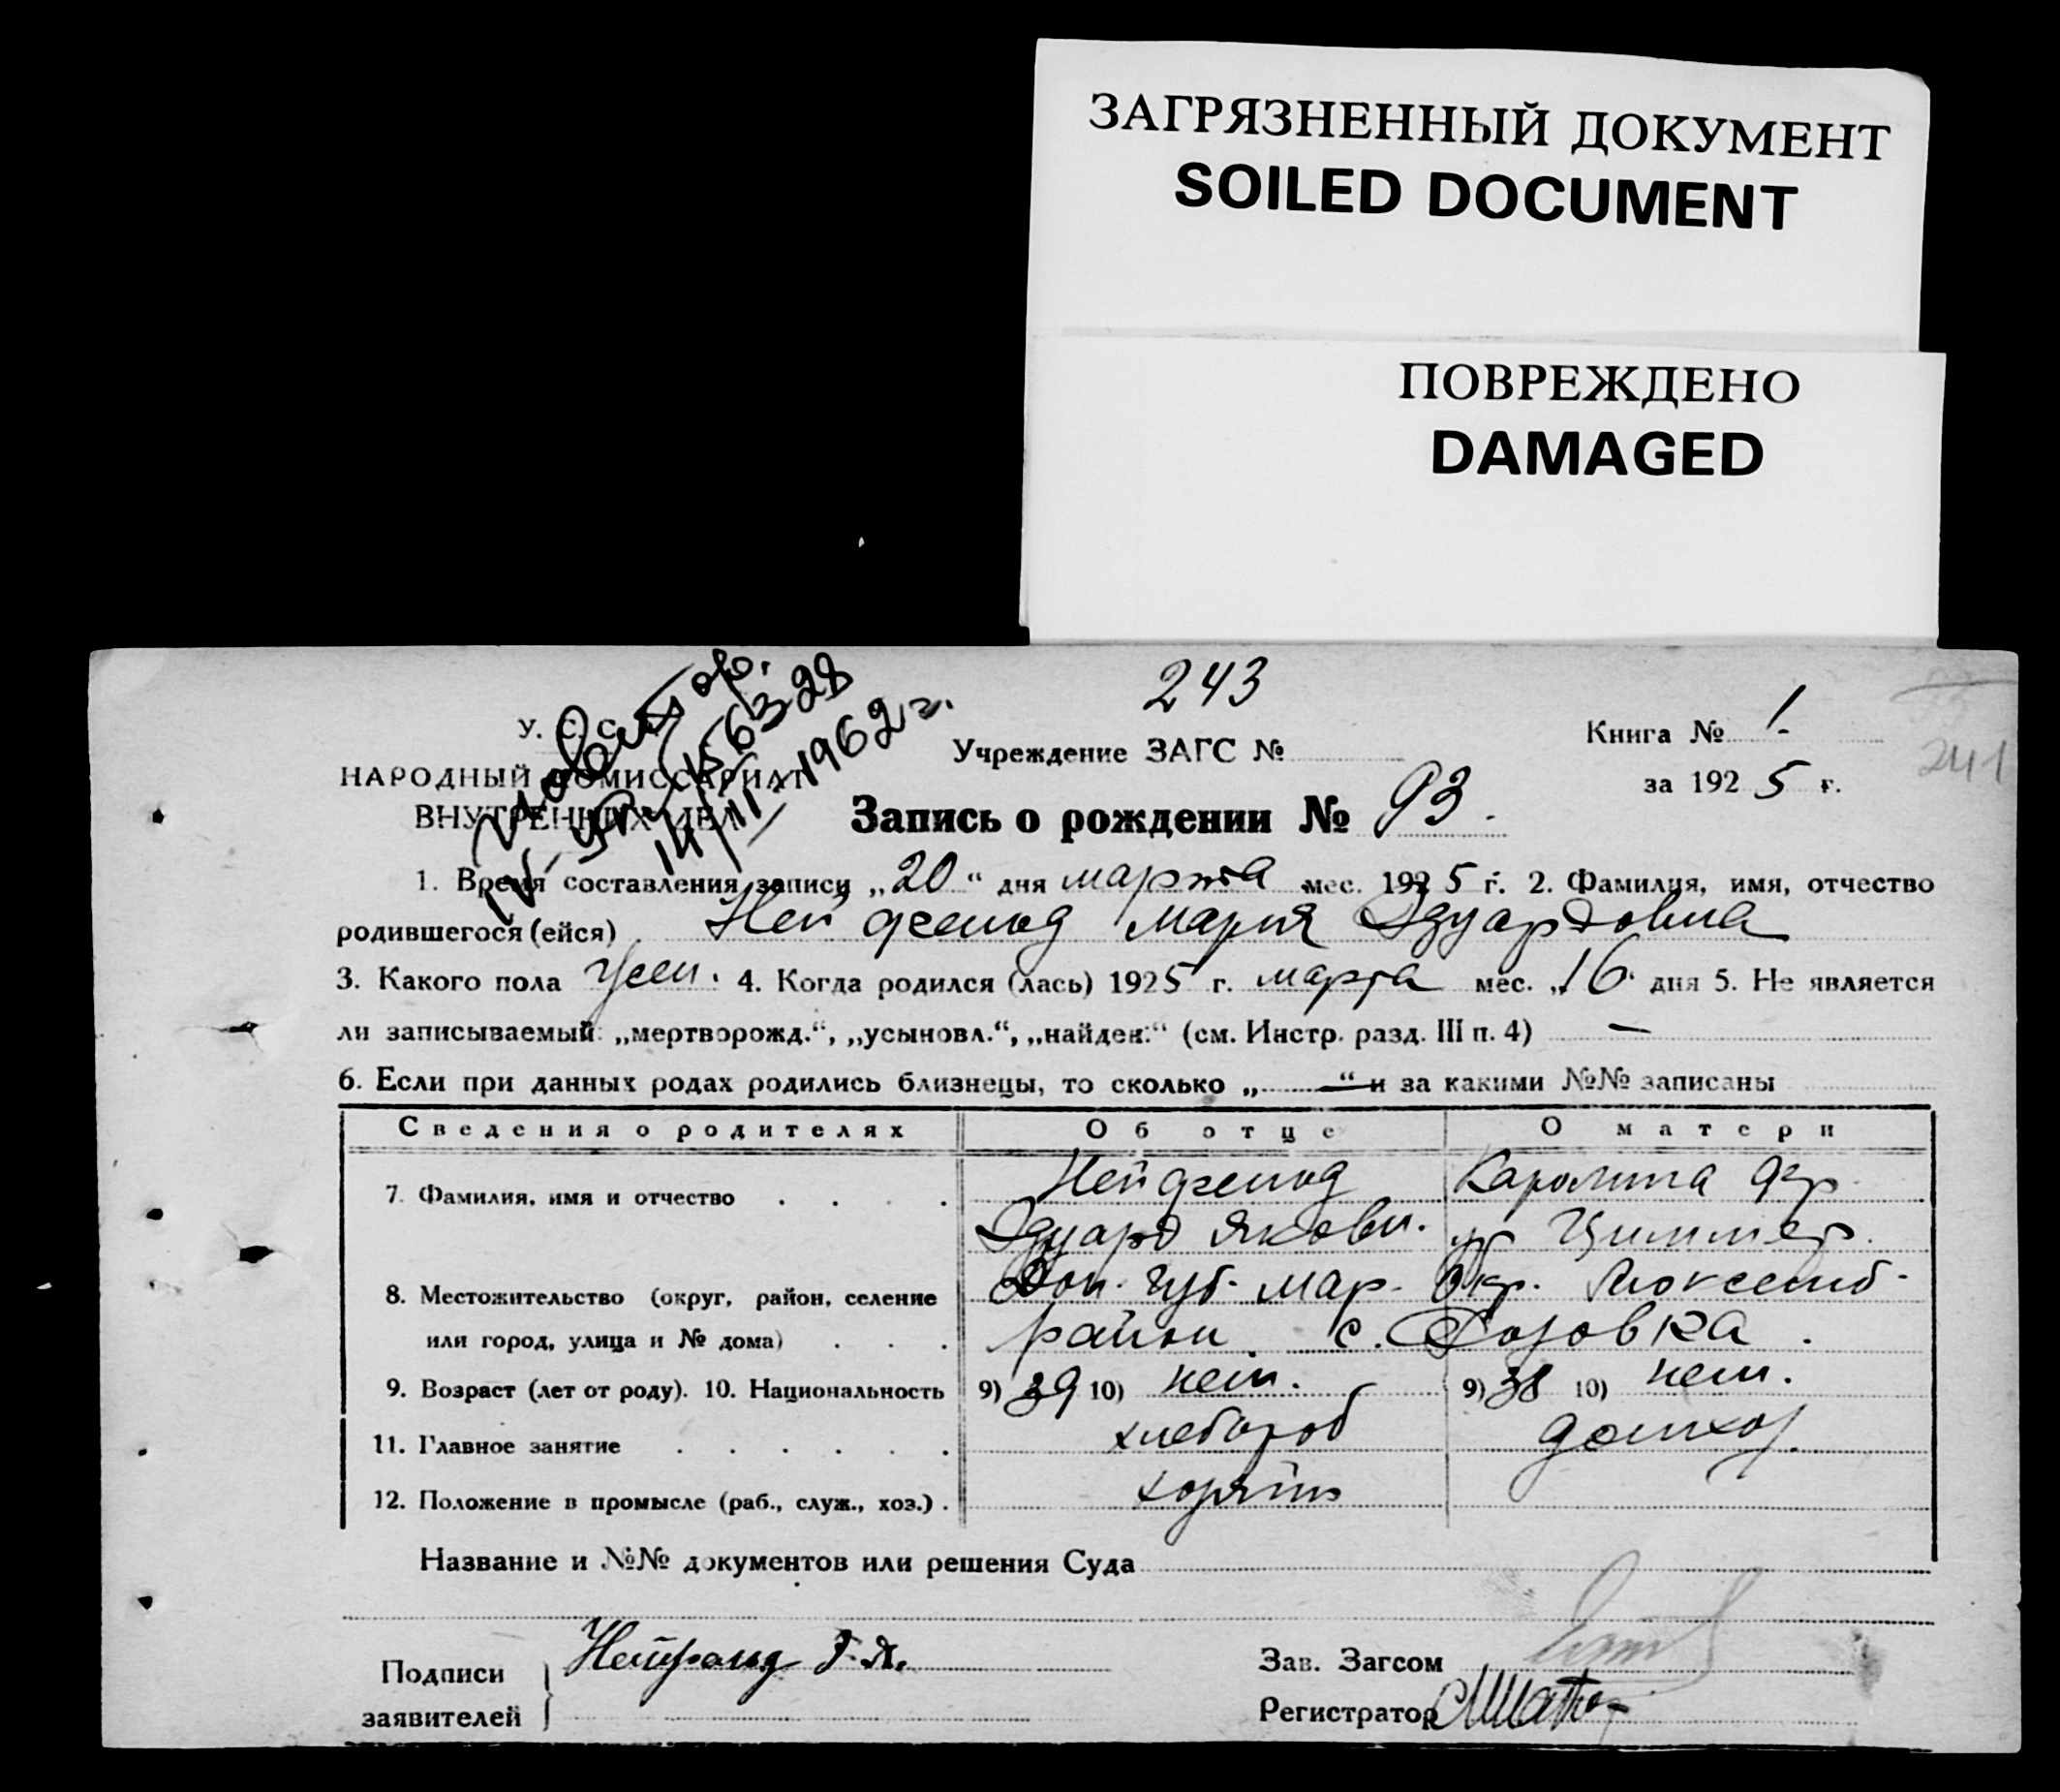 ЗАГРЯЗНЕННЫЙ ДОКУМЕНТ
SOILED DOCUMENT
ПОВРЕЖДЕНО
DAMAGED
243
У. С. С.
Книга № 1
Учреждение ЗАГС №
241
НАРОДНЫЙ КОМИССАРИАТ
за 1925 г.
ВНУТРЕННИХ ДЕЛ
14/II-1962 г.
Запись о рождении № 93.
1. Время составления записи „20“ дня марта мес. 1925 г. 2. Фамилия, имя, отчество
родившегося (ейся) Нейфельд Мария Эдуардовна
3. Какого пола жен. 4. Когда родился (лась) 1925 г. марта мес. „16 дня 5. Не является
ли записываемый: „мертворожд.“, „усыновл.“, „найден.“ (см. Инстр. разд. III п. 4) —
6. Если при данных родах родились близнецы, то сколько „—“ и за какими №№ записаны
Сведения о родителях Об отце О матери
7. Фамилия, имя и отчество Нейфельд Каролина
Эдуард Яковл. Циммер.
8. Местожительство (округ, район, селение Дон. губ. Мар. Окр. Люксемб-
или город, улица и № дома) район. с.
9. Возраст (лет от роду). 10. Национальность 9) 39 10) нем. 9) 38 10) нем.
11. Главное занятие хлебороб домхоз.
12. Положение в промысле (раб., служ., хоз.) хозяин
Название и №№ документов или решения Суда
Подписи заявителей Э. Я.
Зав. Загсом
Регистратор